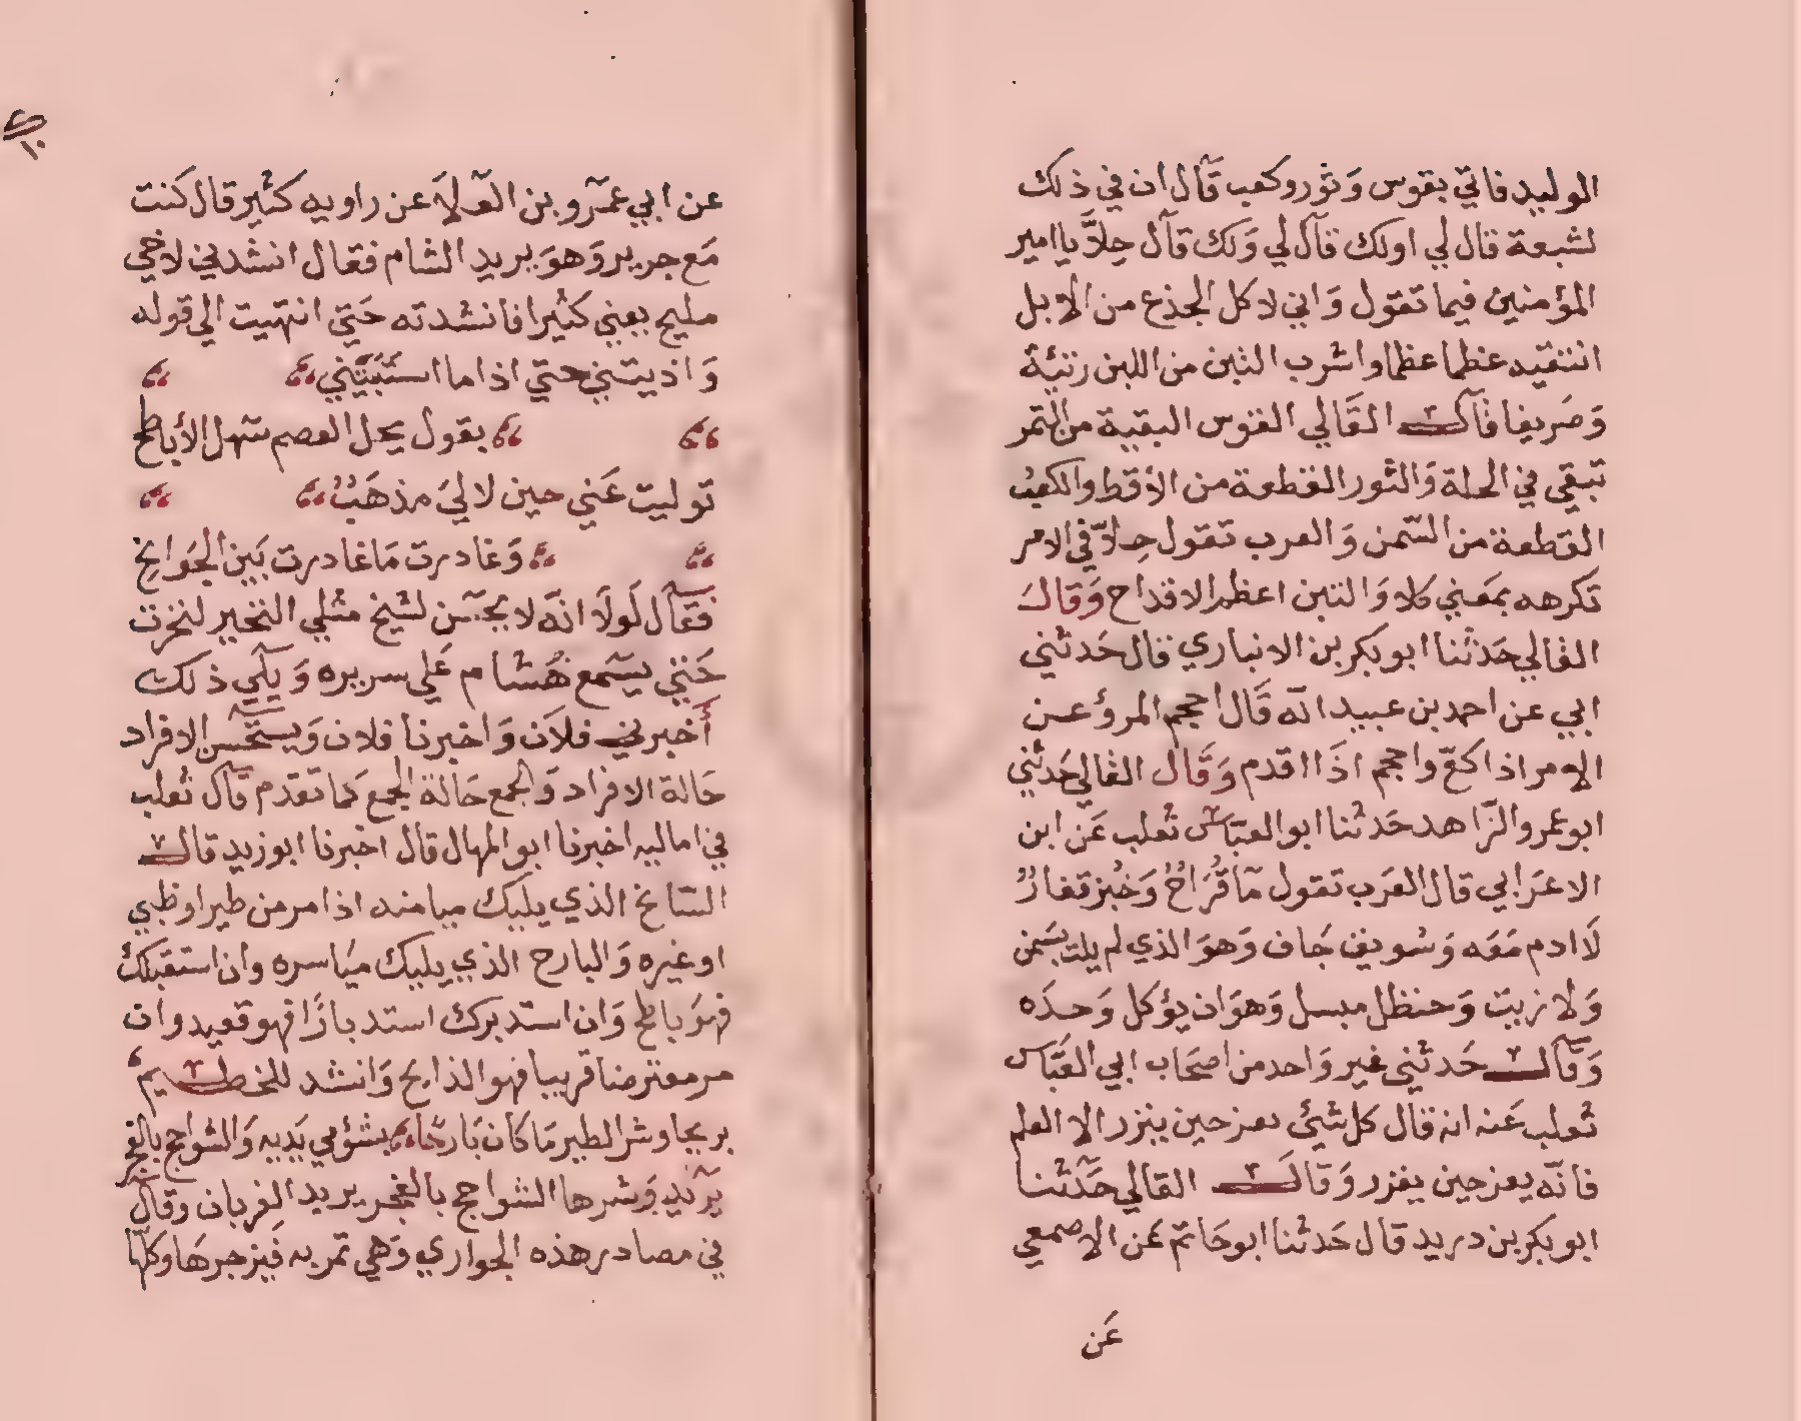 الوليد فاتي بقوس وَثور وكعب قاَل ان في ذلك
لشبعة قال لي اولك قاَل لي وَلك قاَل حِلاَّ يا امير
المؤمنين فيما تقول وَاني لاكل الجذع من الابل
انتقيه عظما عظما واشرب التبن من اللبن رثيئة
وَصَريفا قاَل القَالي القوس البقية من التمر
تبقي في الحلة وَالثور القطعة من الاقط والكعب
القطعة من السّمن وَالعرب تقول حِلاّ في الامر
تكرهه بمَعني كلا وَالتبن اعظم الاقداح وَقال
القالي حَدثنا ابو بكر بن الانباري قال حَدثني
ابي عن احمد بن عبيد انه قَال احجم المرؤ عن
الامر اذا كعّ واحجم اذَا اقدم وَقَال القالي حَدثني
ابو عمرو الزّاهد حَدثنا ابو العبّاس ثعلب عَن ابن
الاعرَابي قال العَرَب تقول مَا قُرَاحُ وَخُبز قفارُ
لَا ادم مَعَه وَسويق جَاف وَهوَ الذي لم يلت بسَمن
وَلا زيت وَحنظل مبسل وَهوَ ان يؤكل وَحدَه
وَقاَل حَدثني غير وَاحد من اصحَاب ابي العَبَّاس
ثعلب عَنه انه قال كل شيئ يعز حين ينزر الا العلم
فانّه يعز حين يغزر وَقالَ القالي حَدّثنا
ابو بكر بن دريد قال حَدثنا ابو حَاتم عَن الاصمعي
عَن
عن ابي عمَرو بن العَلاَ عن راويه كثير قال كنت
مَع جرير وَهوَ يريد الشام فقال انشدني لاخي
مليح يعني كثيرا فانشدته حَتي انتهيت الي قوله
وَادنيتني حتي اذا ما استَبَيْتَني
بقول يحل العصم سَهل الأباطح
توليت عَني حين لا ليَ مذهَبُ
وَغادرت مَا غادرت بَين الجَوانح
فقاَل لَولَا انه لا يحسن لشيخ مثلي النخير لنخرت
حَتي يسَمع هُشام عَلي سريره وَيلَي ذلك
أخبرني فلَان وَاخبرنا فلان وَيستحَسن الافراد
حَالة الافراد وَالجمع حَالة الجمع كما تقدم قاَل ثعلب
في اماليه اخبرنا ابو المهال قال اخبرنا ابو زيد قال
السّانح الذي يليك ميامنه اذا مر من طير او ظبي
او غيره وَالبارح الذي يليك ميَاسره وان استقبلك
فهوَ ناطح وَان استدبرك استدبارًا فهو قعيد وان
مر معترضا قريبا فهو الذابح وَانشد للخطيم
بريحا وشر الطير مَا كان بَارحًا بشؤمي يَديه وَالشواحج بالفجر
يرَيد وَشرها الشواحج بالفجر يريد الغربان وقال
في مصادر هذه الجواري وَهي تمر به فَيزجرهَا وكلّها